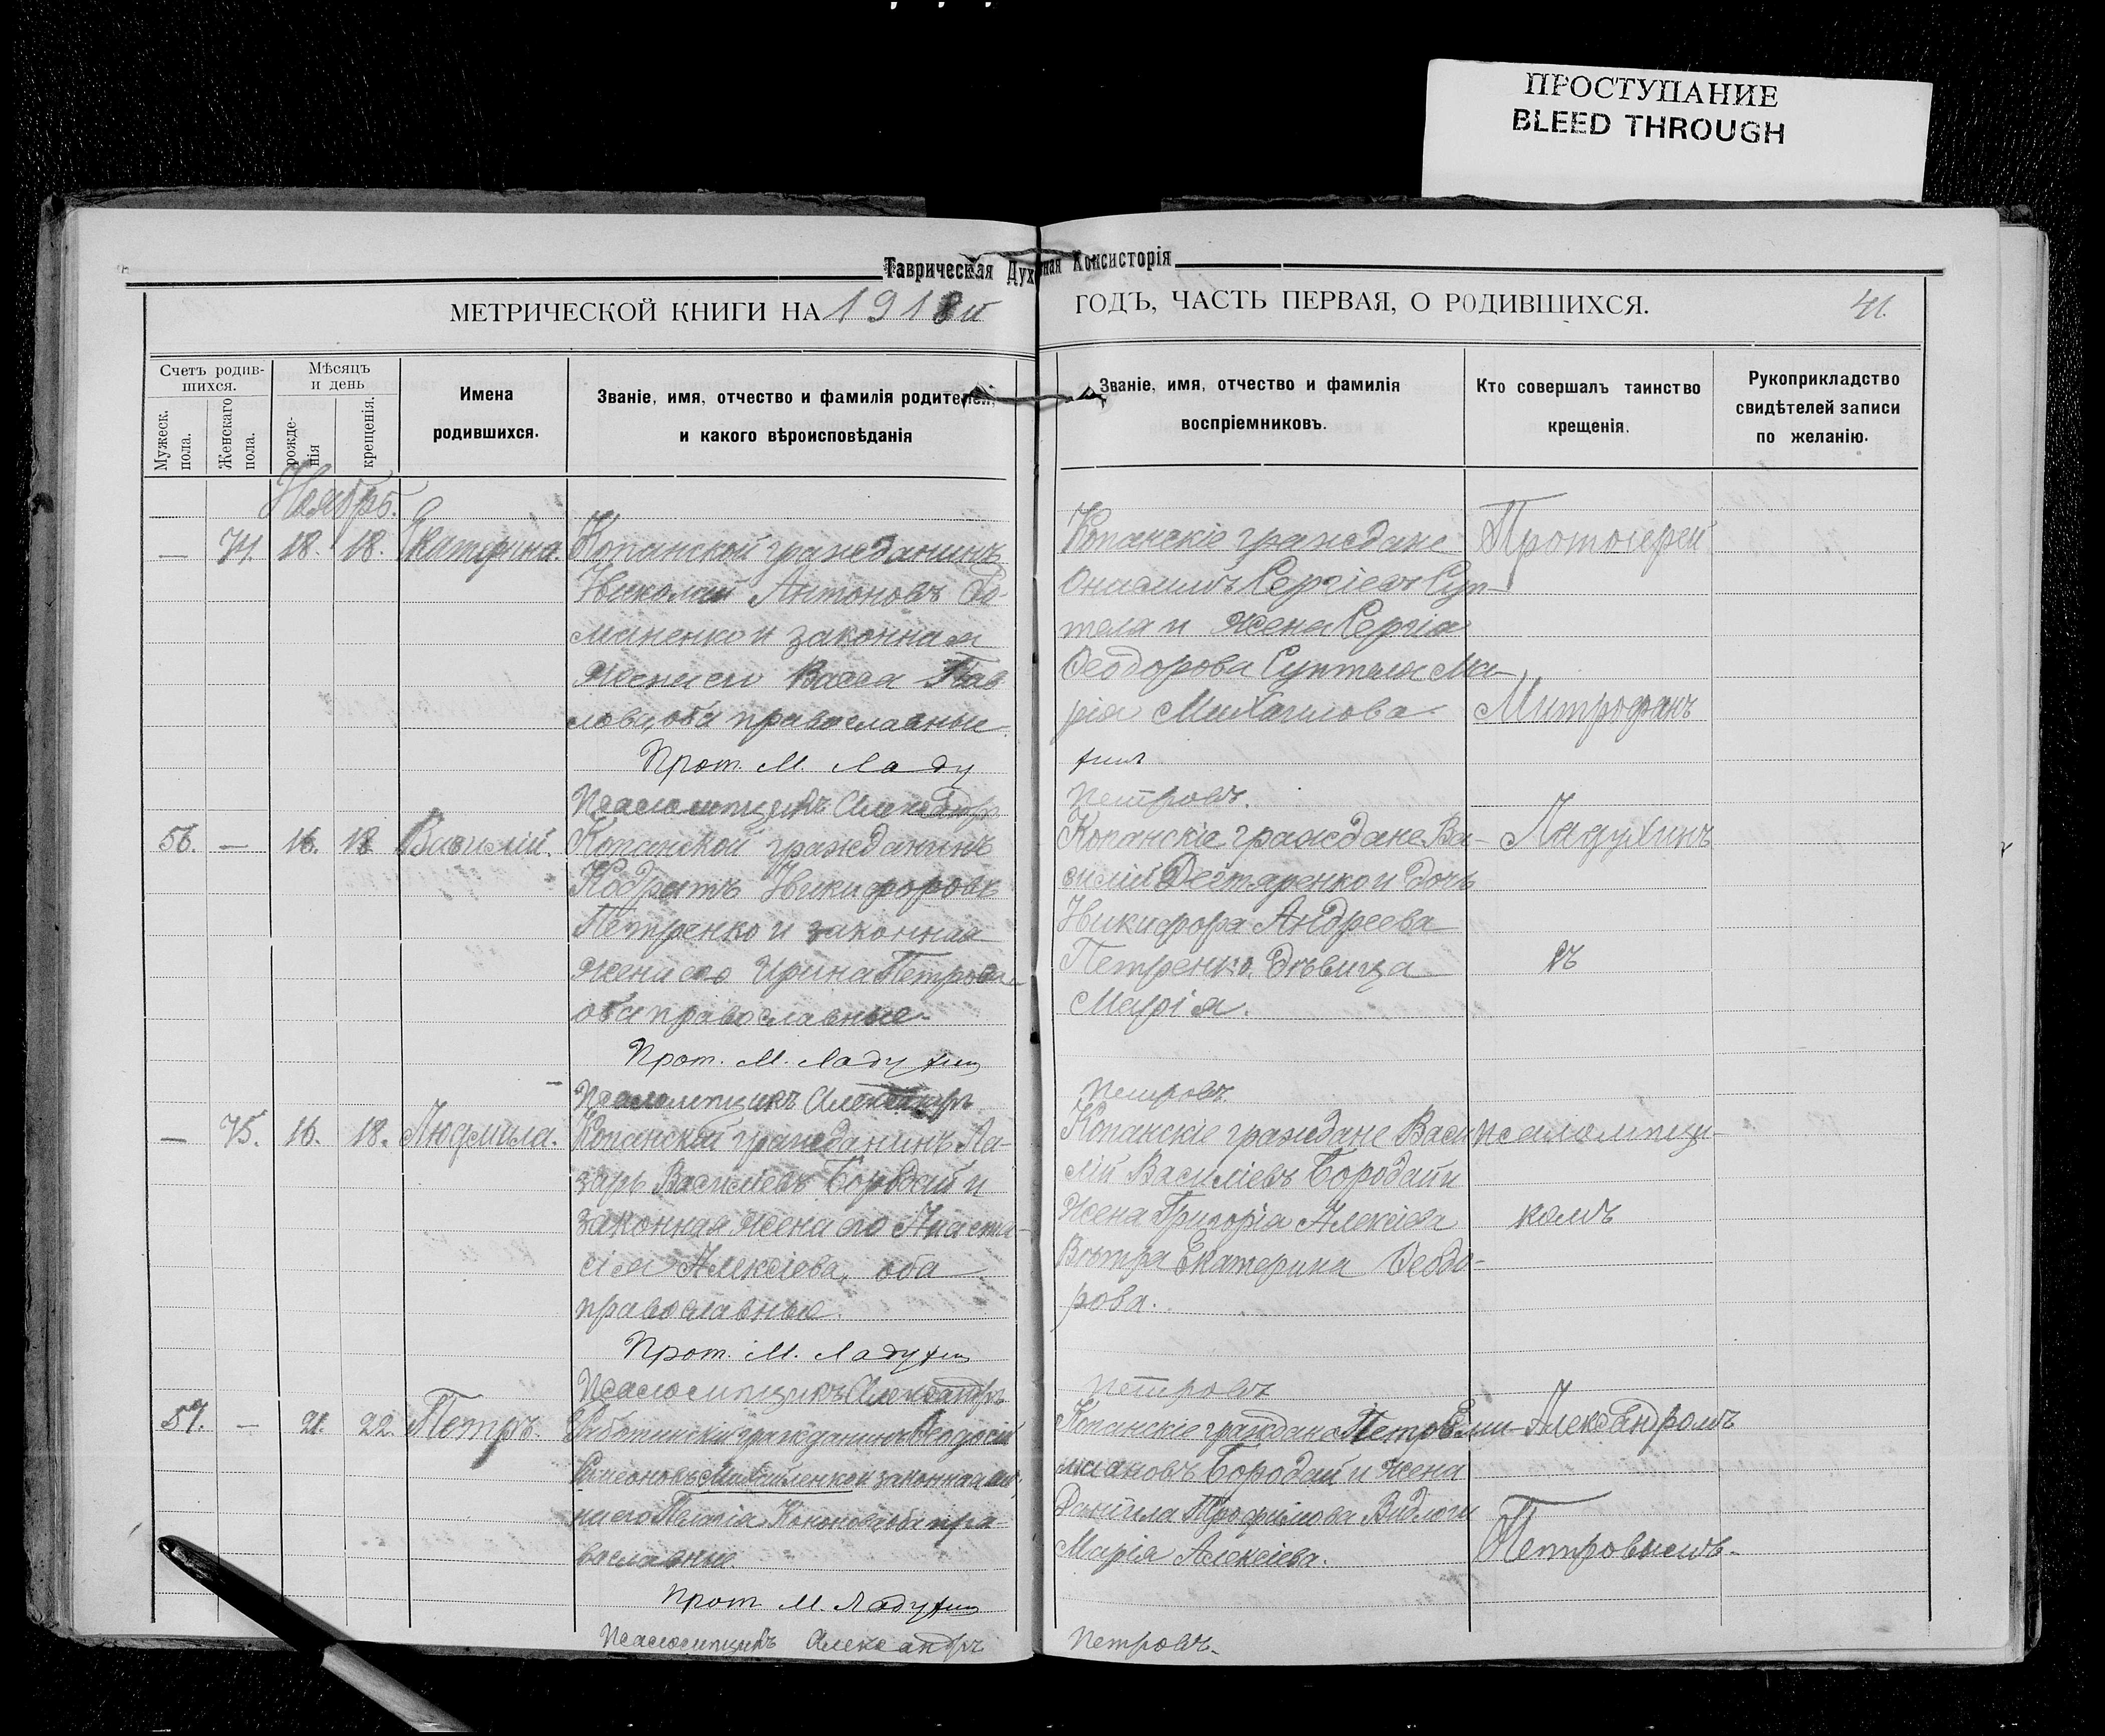 ПРОСТУПАНИЕ
BLEED THROUGH
Таврическая Духовная Консисторія
МЕТРИЧЕСКОЙ КНИГИ НА 1918й ГОДЪ, ЧАСТЬ ПЕРВАЯ, О РОДИВШИХСЯ.
41.
Счетъ родив-
шихся.
Мужеск.
пола.
Женскаго
пола.
Мѣсяцъ
и день
рожде-
нія
крещенія.
Имена
родившихся.
Званіе, имя, отчество и фамилія родителей,
и какого вѣроисповѣданія
Званіе, имя, отчество и фамилія
воспріемниковъ.
Кто совершалъ таинство
крещенія.
Рукоприкладство
свидѣтелей записи
по желанію.
Ноябрь.
— 74. 18. 18. Екатерина.
Копанской гражданинъ
Николай Антоновъ
и законная
жена его Васса Пав
лова, оба православные.
Прот. М. Ладу
хин
Псаломщикъ Александръ
Петровъ.
Копанскіе граждане
Сергіевъ Суп-
теля и жена Сергія
Ѳеодорова Суптеля Ма-
рія Михаилова.
56. — 16. 18 Василій.
Копанской гражданинъ
Кодратъ Никифоровъ
Петренко и законная
жена его Ирина Петрова
оба православные.
Прот. М. Ладухин
Псаломщикъ Александръ
Петровъ.
Копанскіе граждане Ва-
силій Дегтяренко и дочь
Никифора Андреева
Петренко, дѣвица
Марія.
— 75. 16. 18. Людмила.
Копанской гражданинъ Ла-
зарь Василіевъ Бородай и
законная жена его Анаста-
сія Алексіева, оба
православные.
Прот. М. Ладухин
Псаломщикъ Александръ
Петровъ
Копанскіе граждане Васи
лій Василіевъ Бородай и
жена Григорія Алексіева
Вѣтра Екатерина Ѳеодо-
рова.
57. — 21. 22. Петръ.
гражданинъ Ѳеодосій
Симеоновъ Михайленко и законная же
на его Пелагія Кононова, оба пра
вославные.
Прот. М. Ладухин
Псаломщикъ Александръ
Петровъ.
Копанскіе граждане Петръ Еми-
лиановъ Бородай и жена
Даніила Трофимова Видлоги
Марія Алексіева.
Протоіерей
Митрофанъ
Ладухинъ
съ
псаломщи-
комъ
Александромъ
Петровымъ.